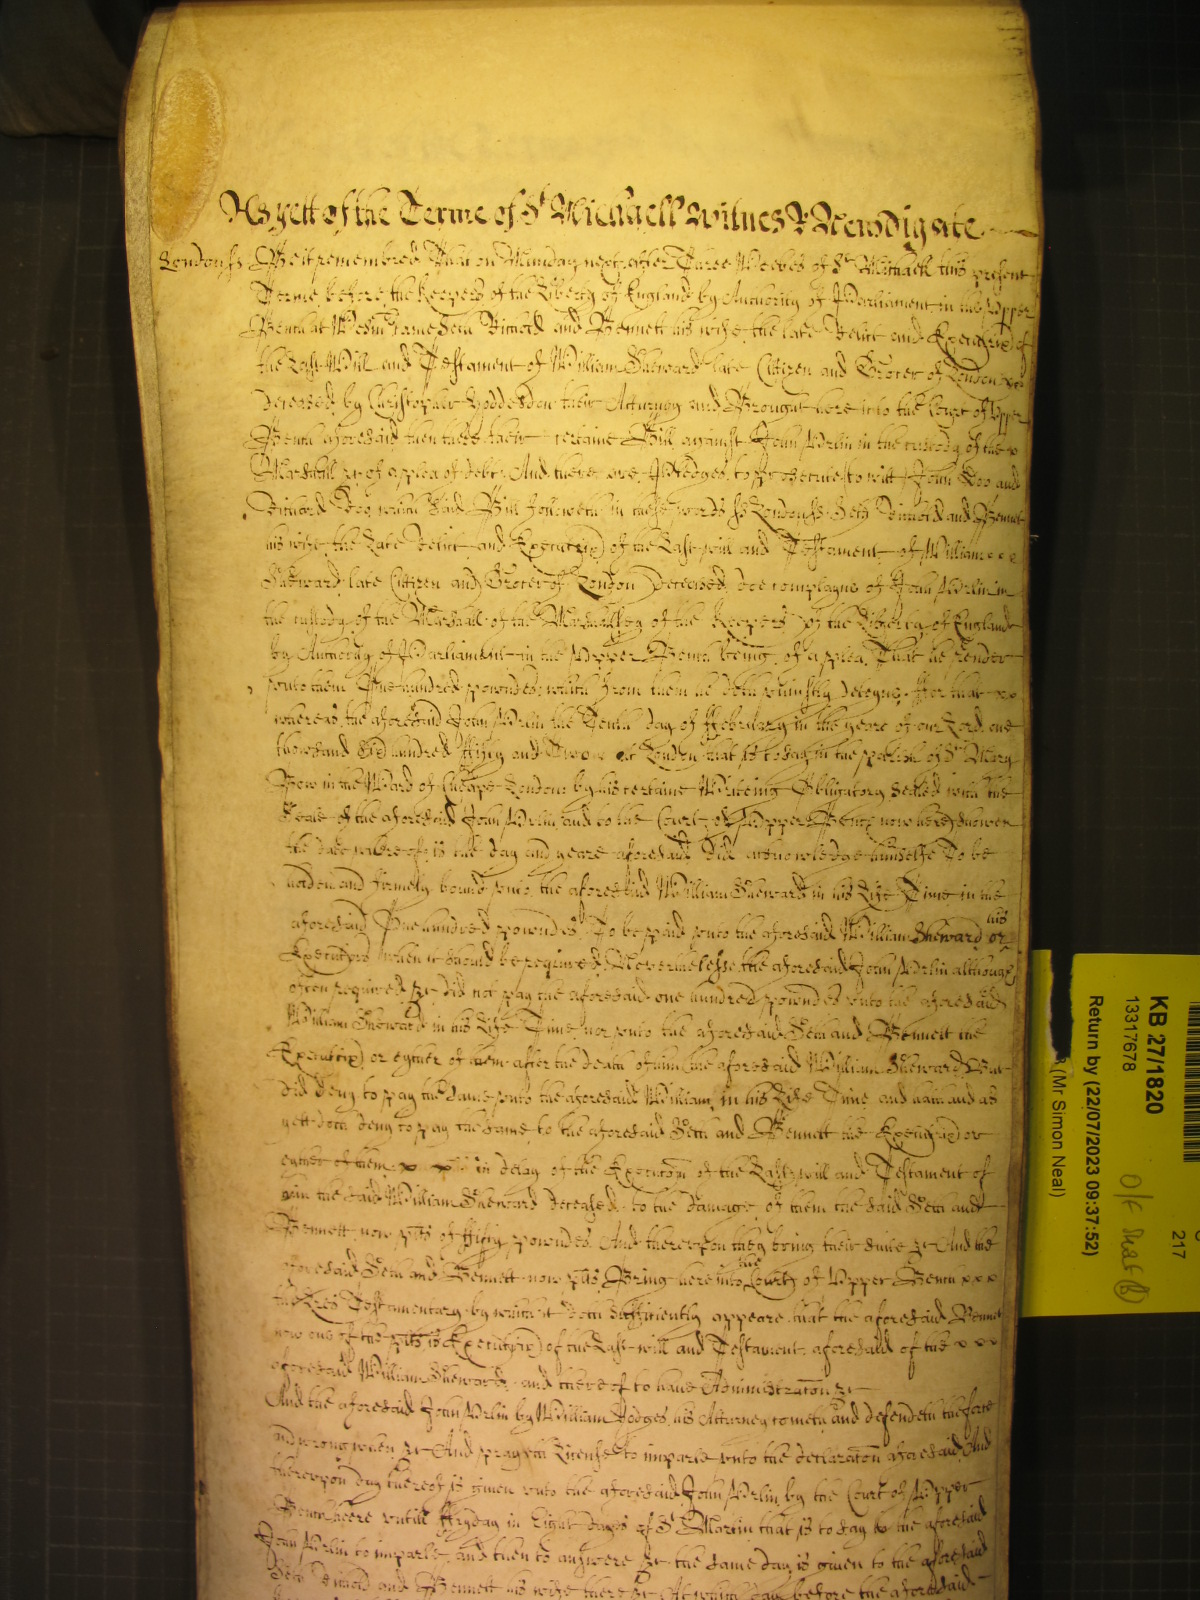 As yett of the Terme of St Michaell Witnes R Newdigate
London ss Be it remembred That on Munday next after Three Weekes of St Michaell this present
Terme before the Keepers of the Liberty of England by Authority of Parliament in the Upper
Bench at Westm came Seth and Bennett his wife the late Relict and Executrix of
the Last Will and Testament of William Sheward late Citizen and Grocer of London xx
deceased by Christopher Hoddesdon their Atturney and Brought here into the Court of Upper
Bench aforesaid then there their certaine Bill against John in the custody of the x
Marshall &c of a plea of debt And there are Pledges to prosecute to witt John Doo and
Richard Roo which said Bill followeth in these words ss London ss Seth and Bennett
his wife the Late Relict and Executrix of the Last will and Testament of William x x x
Sheward late Citizen and Grocer of London Deceased doe complayne of John in
the custody of the Marshall of the Marshallsey of the Keepers of the Liberty of England
by Authority of Parliament in the Upper Bench being of a plea That he render
unto them One hundred powndes which from them he doth uniustly deteyne For that xx
whereas the aforesaid John the Tenth day of February in the yeare of our Lord one
thowsand Six hundred Fifty and Two at London that is to say in the parish of St Mary
Bow in the Ward of Cheape London by his certaine Writeing Obligatory Sealed with the
Seale of the aforesaid John and to the Court of Upper Bench now here shewen
the date whereof is the day and yeare aforesaid did acknowledge himselfe To be
holden and firmely bound unto the aforesaid William Sheward in his Life Time in the
aforesaid One hundred powndes To be paid unto the aforesaid William Sheward or his
Executors when it should be required Neverthelesse the aforesaid John although
often required &c did not pay the aforesaid one hundred powndes unto the aforesaid
William Sheward in his Life Time nor unto the aforesaid Seth and Bennett the
Executrix or eyther of them after the death of him the aforesaid William Sheward but
did deny to pay the same unto the aforesaid William in his Life Time and hath and as
yett doth deny to pay the same to the aforesaid Seth and Bennett the Executrix or
eyther of them x x in delay of the Execution of the Last will and Testament of
him the said William Sheward deceased to the damage of them the said Seth and
Bennett now plts of Fifty powndes And thereupon they bring their suite &c And the
aforesaid Seth and Bennett now plts Bring here into the Court of Upper Bench x x x
the Lres Testamentary by which it doth sufficiently appeare that the aforesaid Bennett
now one of the plts is Executrix of the Last will and Testament aforesaid of the x x x
aforesaid William Sheward and thereof to have Administracon &c
And the aforesaid John by William Hodges his Atturney cometh and defendeth the force
and wrong when &c And prayeth License to imparle unto the declaracon aforesaid And
thereupon day thereof is given unto the aforesaid John by the Court of Upper
Bench here untill Fryday in Eight dayes of St Martin that is to say to the aforesaid
John to imparle and then to answere &c the same day is given to the aforesaid
Seth and Bennett his wife there &c At which day before the aforesaid
KB 27/1820
13317678
Return by (22/07/2023 09:37:52)
(Mr Simon Neal)
217